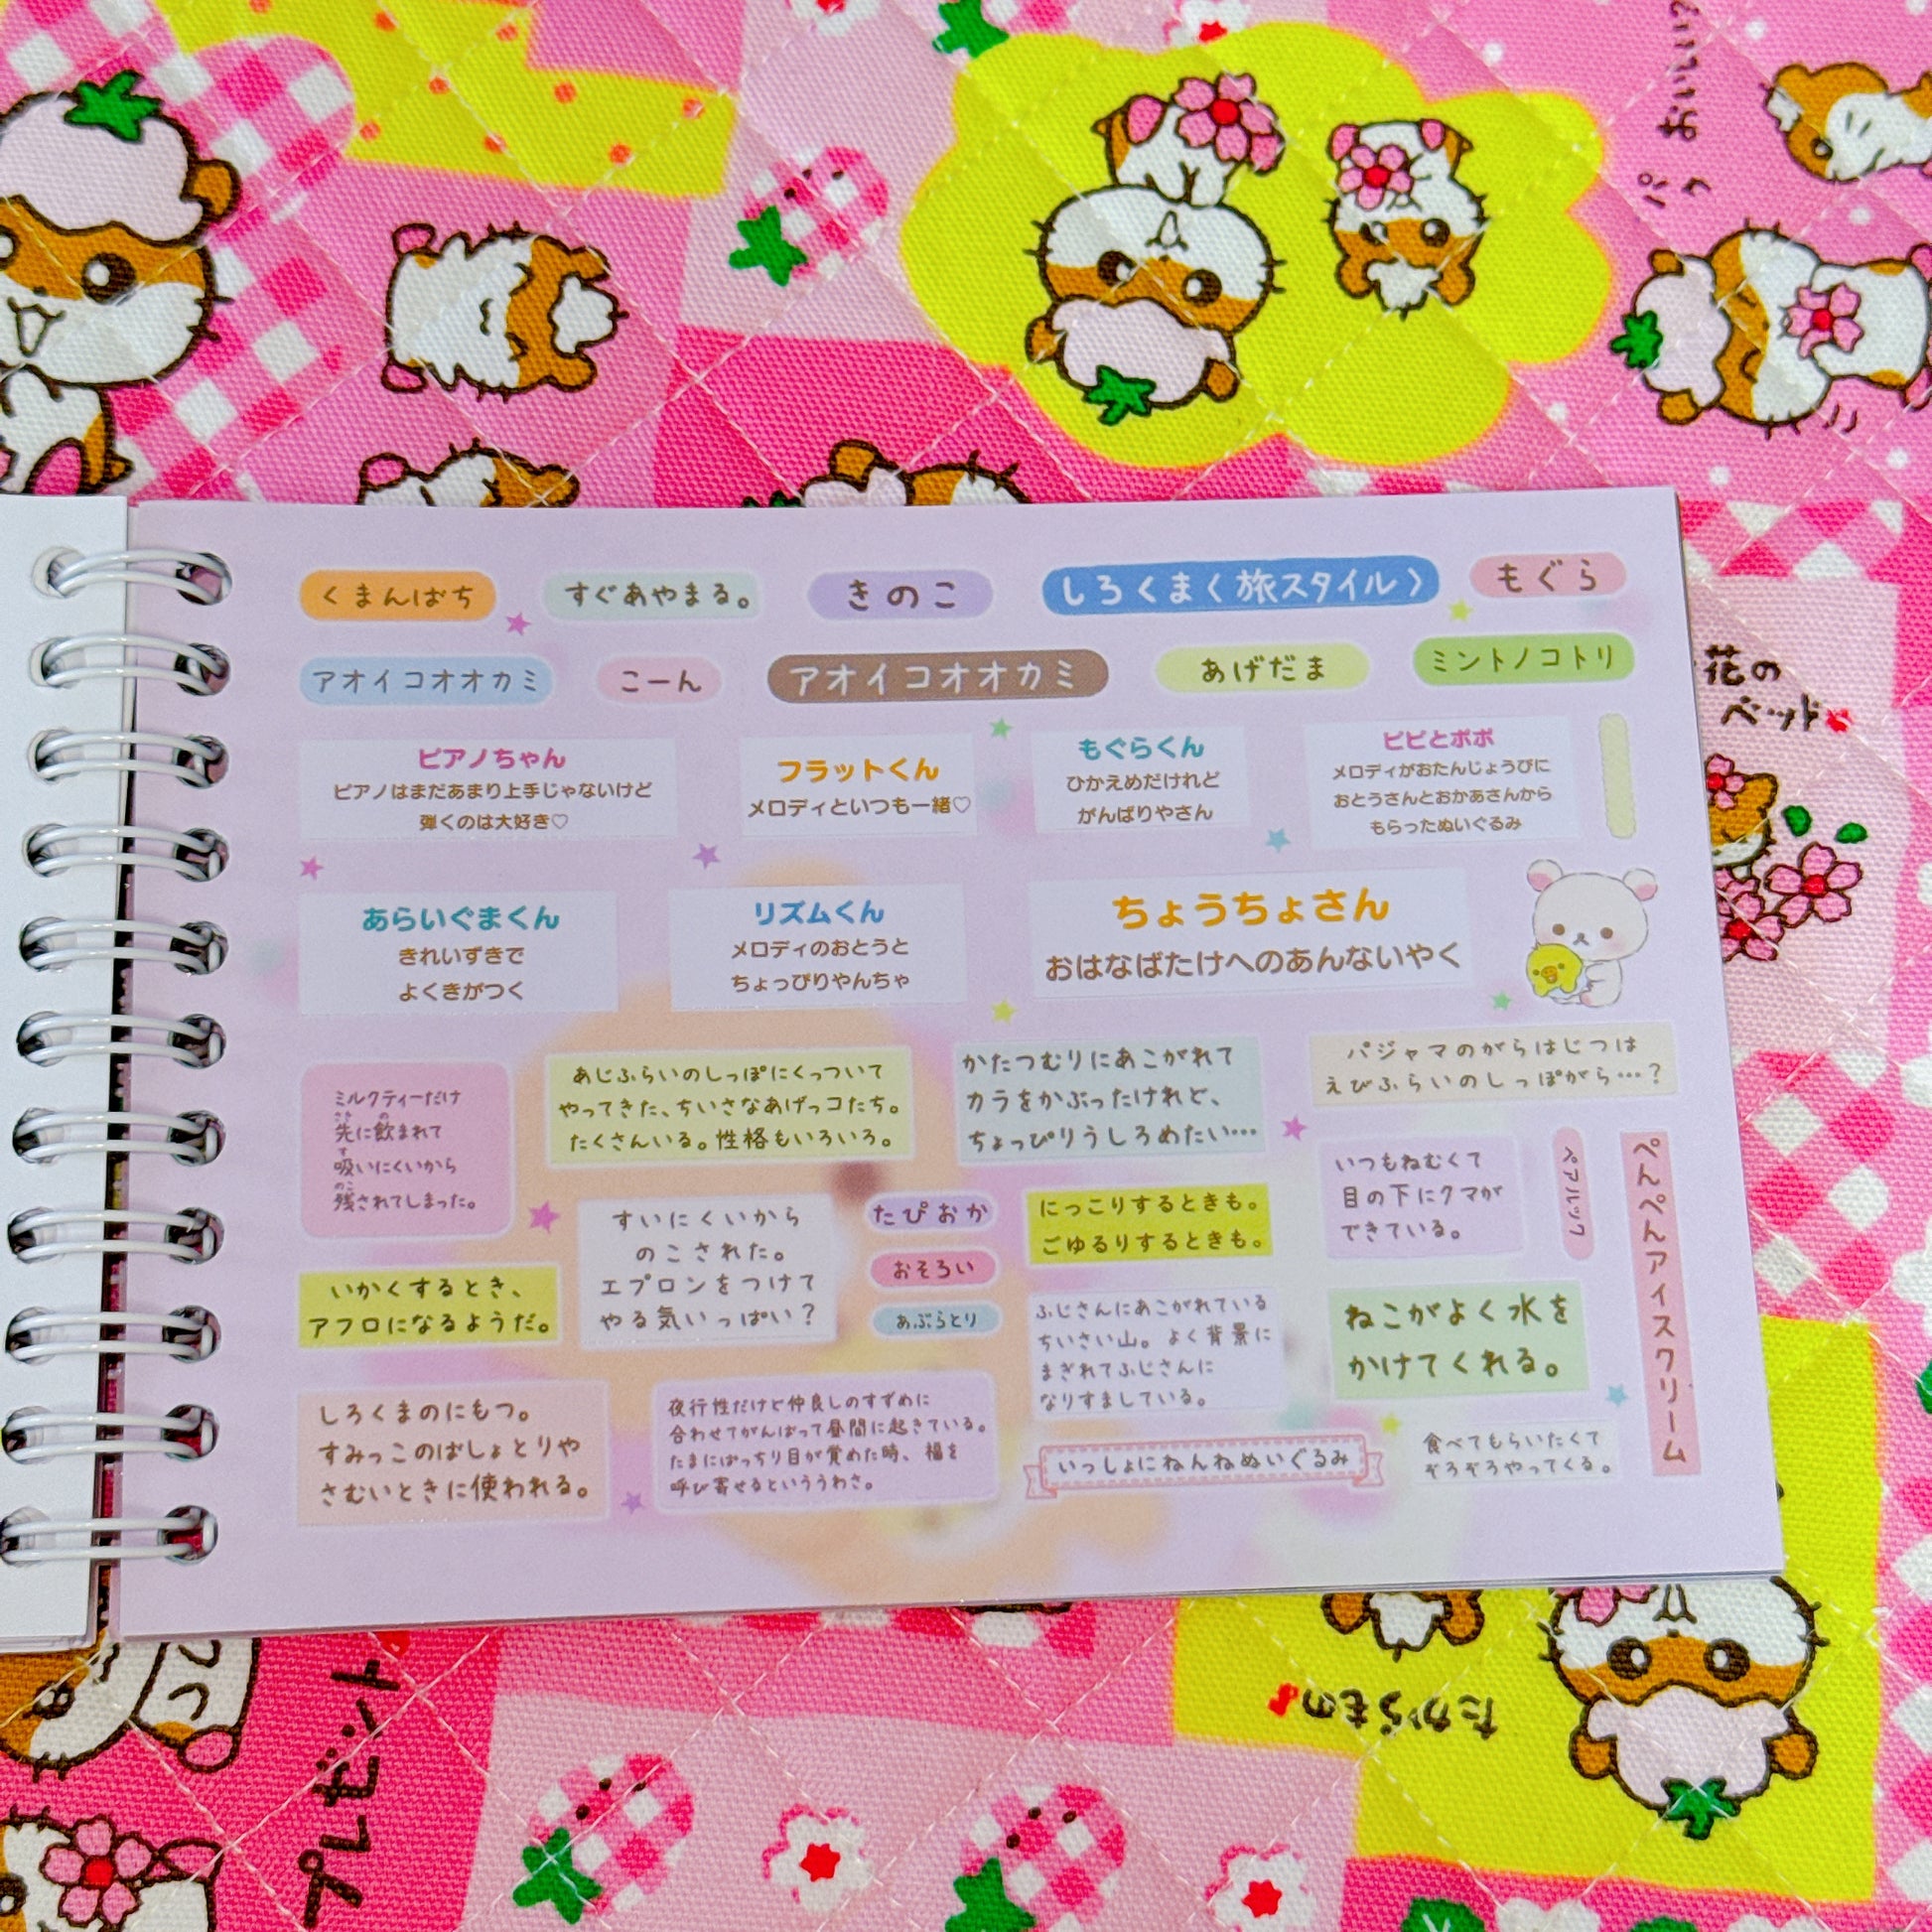 パッ おいしい?
くまんばち
すぐあやまる。
きのこ
しろくまく旅スタイル〉
もぐら
アオイコオオカミ
こーん
アオイコオオカミ
あげだま
ミントノコトリ
花の
ベット
ピアノちゃん
ピアノはまだあまり上手じゃないけど
弾くのは大好き♡
フラットくん
メロディといつも一緒♡
もぐらくん
ひかえめだけれど
がんばりやさん
ピピとポポ
メロディがおたんじょうびに
おとうさんとおかあさんから
もらったぬいぐるみ
あらいぐまくん
きれいずきで
よくきがつく
リズムくん
メロディのおとうと
ちょっぴりやんちゃ
ちょうちょさん
おはなばたけへのあんないやく
ミルクティーだけ
先に飲まれて
吸いにくいから
残されてしまった。
あじふらいのしっぽにくっついて
やってきた、ちいさなあげっコたち。
たくさんいる。性格もいろいろ。
かたつむりにあこがれて
カラをかぶったけれど、
ちょっぴりうしろめたい…
パジャマのがらはじつは
えびふらいのしっぽがら…?
いかくするとき、
アフロになるようだ。
すいにくいから
のこされた。
エプロンをつけて
やる気いっぱい?
たぴおか
おそろい
あぶらとり
にっこりするときも。
ごゆるりするときも。
いつもねむくて
目の下にクマが
できている。
ペアルック
ぺんぺんアイスクリーム
ふじさんにあこがれている
ちいさい山。よく背景に
まぎれてふじさんに
なりすましている。
ねこがよく水を
かけてくれる。
しろくまのにもつ。
すみっこのばしょとりや
さむいときに使われる。
夜行性だけど仲良しのすずめに
合わせてがんばって昼間に起きている。
たまにぱっちり目が覚めた時、福を
呼び寄せるといううわさ。
いっしょにねんねぬいぐるみ
食べてもらいたくて
ぞろぞろやってくる。
たからもの♪
プレゼント